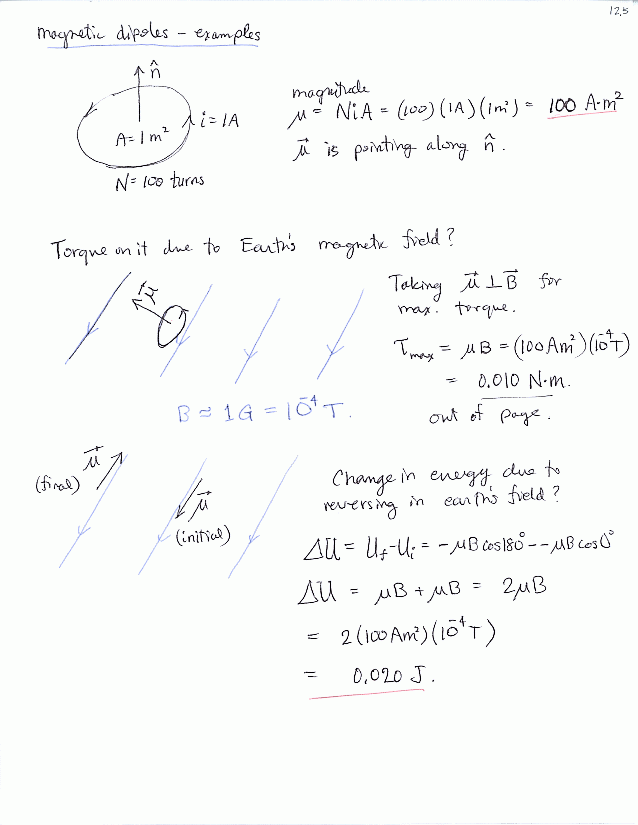 12.5
magnetic dipoles – examples
n̂
i = 1A
A = 1 m²
N = 100 turns
magnitude
μ = NiA = (100)(1A)(1m²) = 100 A·m²
μ⃗ is pointing along n̂.
Torque on it due to Earth's magnetic field?
μ⃗
Taking μ⃗ ⊥ B⃗ for
max. torque.
τmax = μB = (100Am²)(10⁻⁴T)
= 0.010 N·m.
out of page.
B ≈ 1G = 10⁻⁴ T.
μ⃗
(final)
μ⃗
(initial)
Change in energy due to
reversing in earth's field?
ΔU = Uf - Ui = -μB cos180° - -μB cos0°
ΔU = μB + μB = 2μB
= 2(100Am²)(10⁻⁴T)
= 0.020 J.